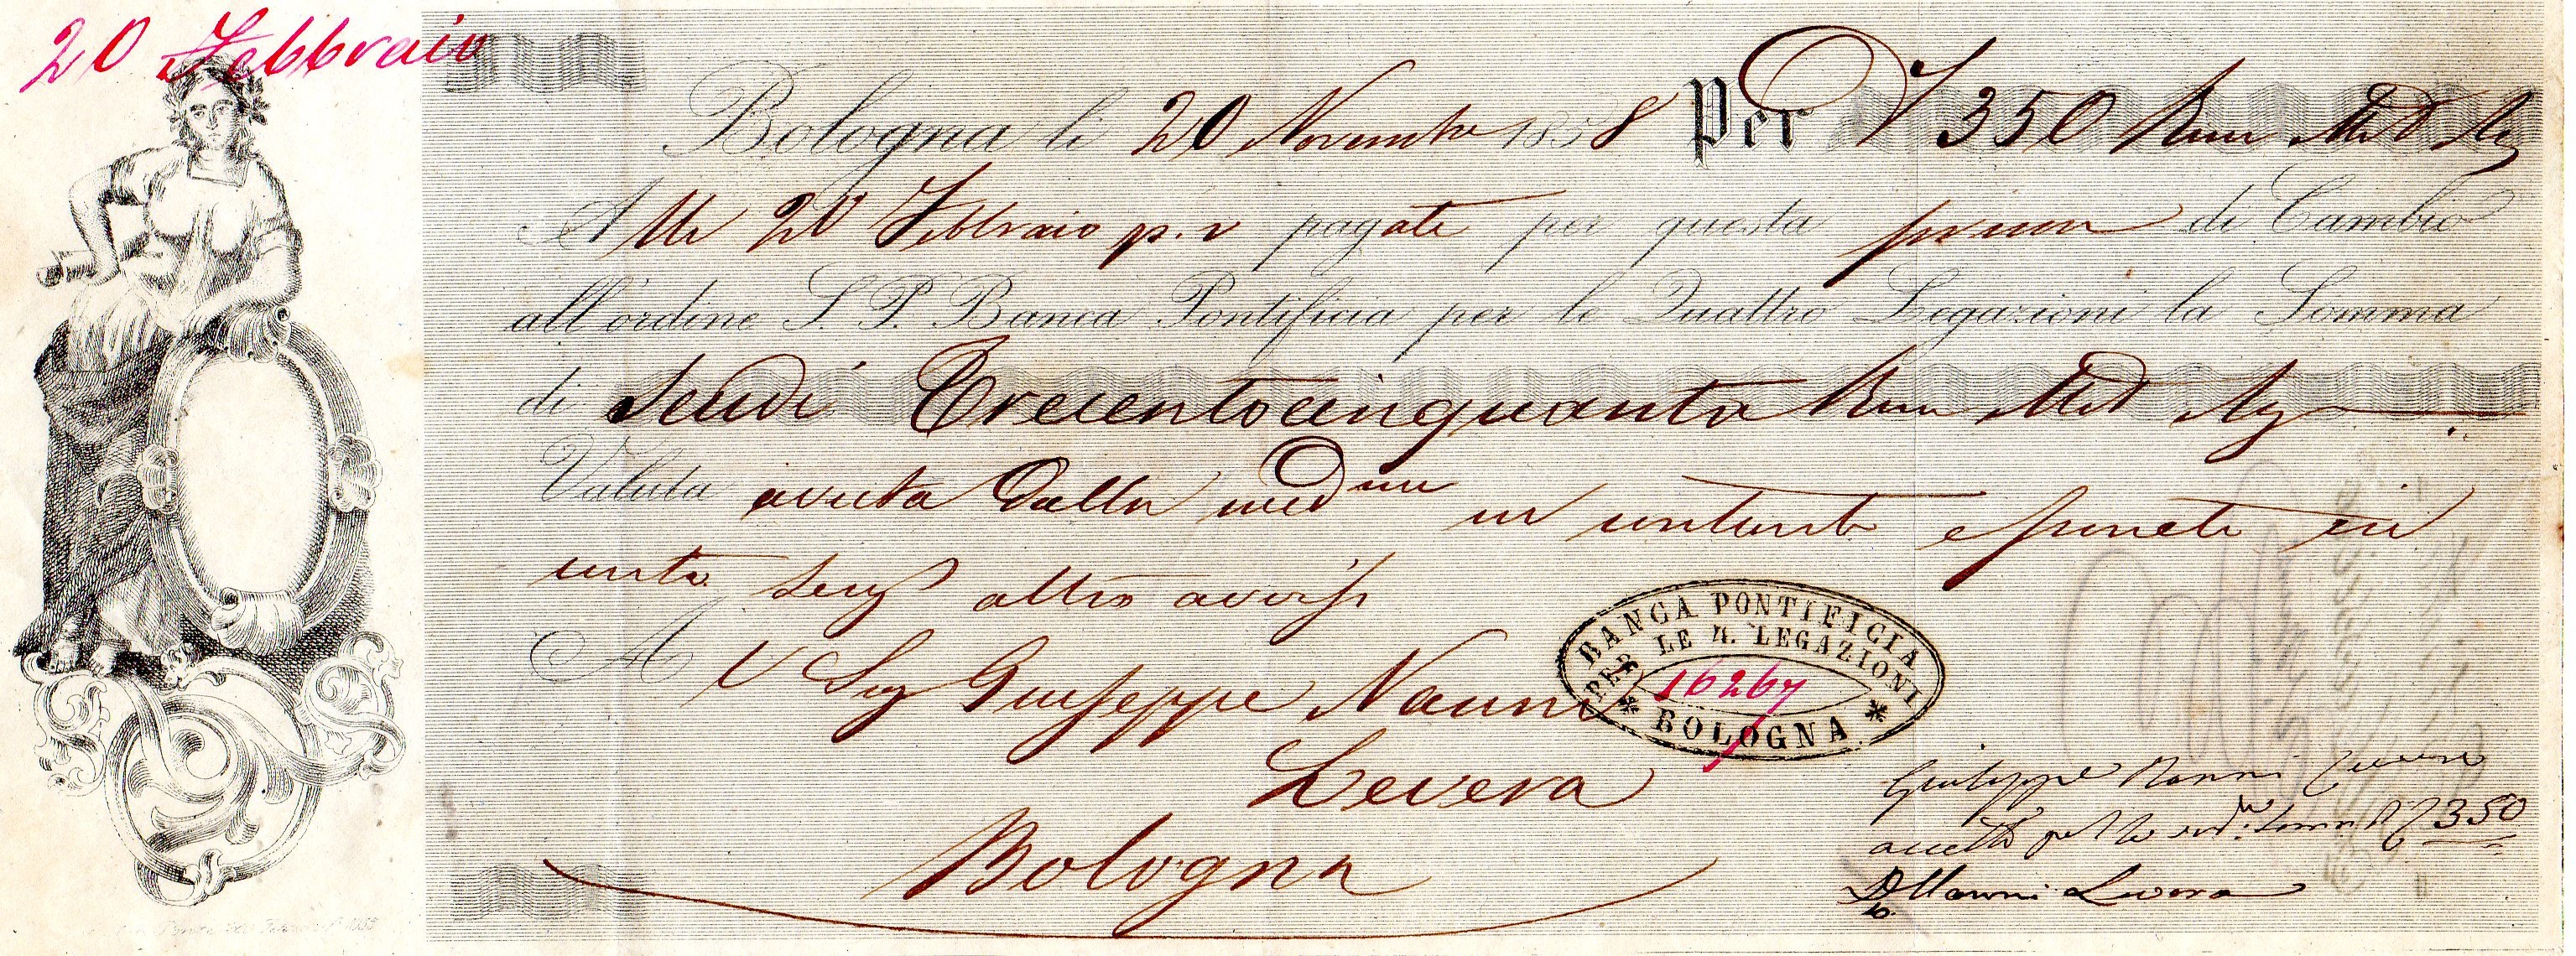 20 Febbraio
Bologna li 20 Novembre 1858 Per 350 Rom
Alli 20 Febbraio p. v pagate per questa prima di Cambio
all'ordine S. P. Banca Pontificia per le Quattro Legazioni la Somma
di Scudi Trecentocinquanta Rom
Valuta avuta dalla med in contanti e ponete in
conto senz altro avviso
Al Sig Giuseppe Nanni
Levera
Bologna
BANCA PONTIFICIA
PER LE 4. LEGAZIONI
16267
* BOLOGNA *
Giuseppe Nanni
accetto per la 350
Nanni Levera